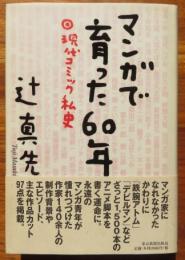 マンガで
育った60年
現代コミック私史
辻 真先
Tsuji Masaki
マンガ家に
なれなかった
かわりに
『鉄腕アトム』
『デビルマン』など
ざっと1,500本の
アニメ脚本を
書く運命に。
永遠の
マンガ青年が
憧れつづけた
作家140余人の
エピソード、
制作背景や
主な作品カット
97点を掲載。
東京新聞出版局